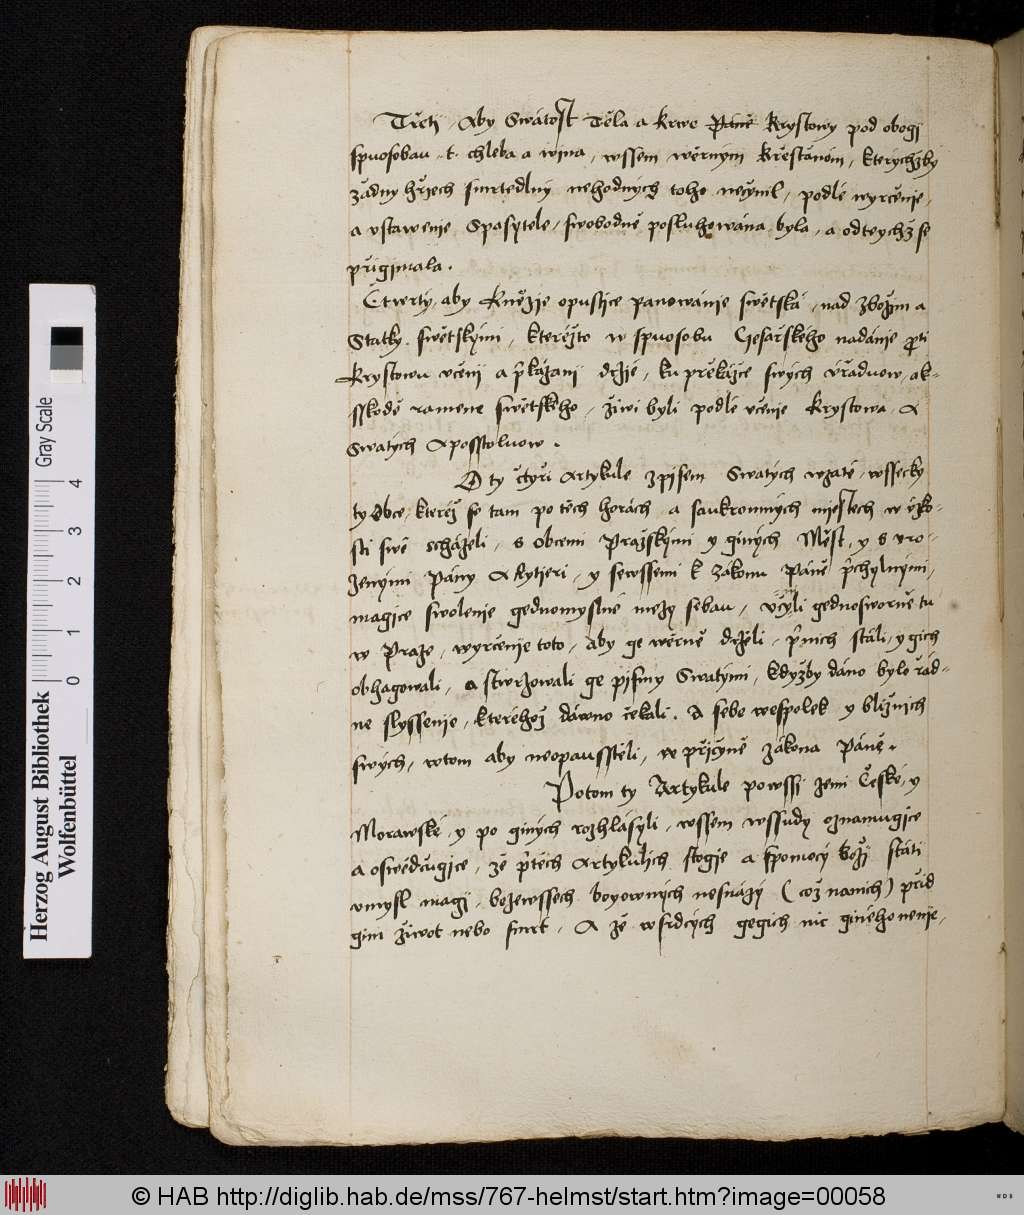 Třetj Aby Swátost Těla a krwe Páně krystowy pod obogj
spuosobau t. chleba a wjna, wssem wěrným křestánóm, kterýchžby
žádny hřjech smrtedlný nehodných toho nečynil, podlé wyrčenje,
a vstawenje Spasytele, swobodně posluhowána byla, a od teychž se
přigjmala.
Čtwrtý, aby kněžje opustjce panowánje swětská, nad zbožjm a
Statky swětskými, kteréjto w spuosobu Cjesařského nadánje proti
krystowu včenj a přikázanj držie, ku překážce swých vřaduow, ak-
sskodě ramene swětského, žiwi byli podlé včenje krystowa A
Swatých Aposstoluow.
O ty čtyři Artykule z pjsem Swatých wzaté, wssecky
ty Obce, kteréž se tam po těch horách a saukromných mjestech w vzko-
sti swé scházeli, s Obcemi Pražskými y giných Měst, y s vro-
zenými Pány A Rytjeri, y sewssemi k zákonu Páně přichylnými,
magjce swolenje gednomyslné mezy sebau, včyli gednosworně tu
w Praze, wyrčenje toto, aby ge wěrně drželi, při nich stáli, y gich
obhagowali, a stwrzowali ge pjsmy Swatými, kdyžby dáno bylo řád-
ne slyssenje, kteréhož dáwno čekali. A sebe wespolek y bližnich
swých, w tom aby neopausstěli, w přičyně zákona Páně.
Potom ty Artykule po wssj zemi České, y
Morawské, y po giných rozhlásyli, wssem wssudy oznamugice
a oswědčugjce, že při těch Artykuljch stogje a s pomocý božj státi
vmysl magj, bezewssech boyowných nesnázý (což na nich) přid
gim žiwot nebo smrt, A že w srdcých gegich nic giného nenje,
Herzog August Bibliothek
Wolfenbüttel
Gray Scale
0 1 2 3 4
© HAB http://diglib.hab.de/mss/767-helmst/start.htm?image=00058